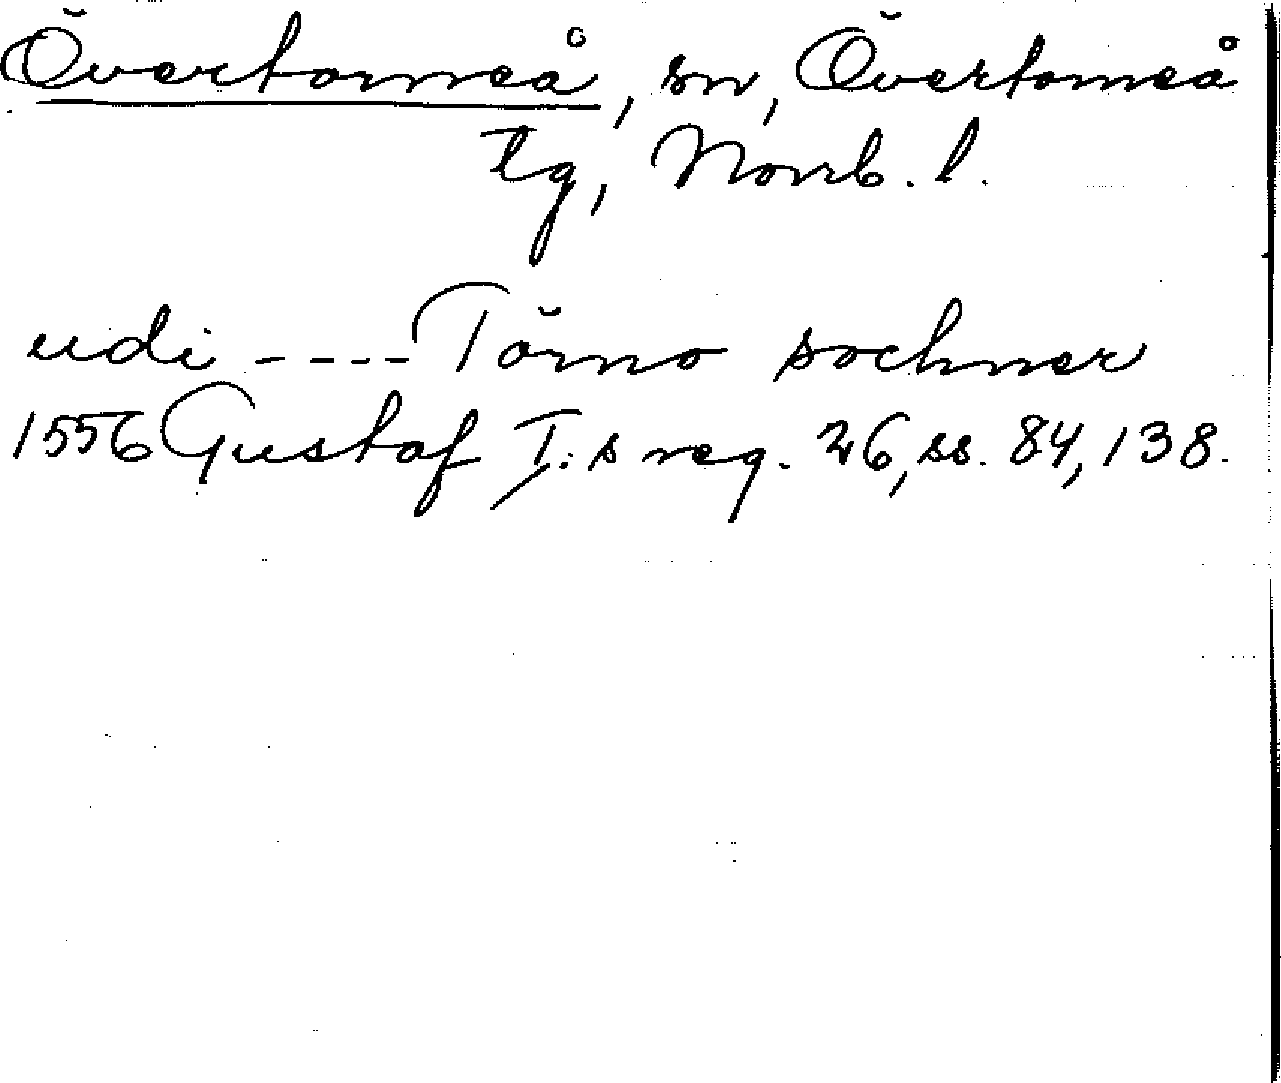 Övertorneå, sn, Övertorneå
tg, Norrb. l.
udi ---- Törno sochner
1556 Gustaf I:s reg. 26, ss. 84, 138.